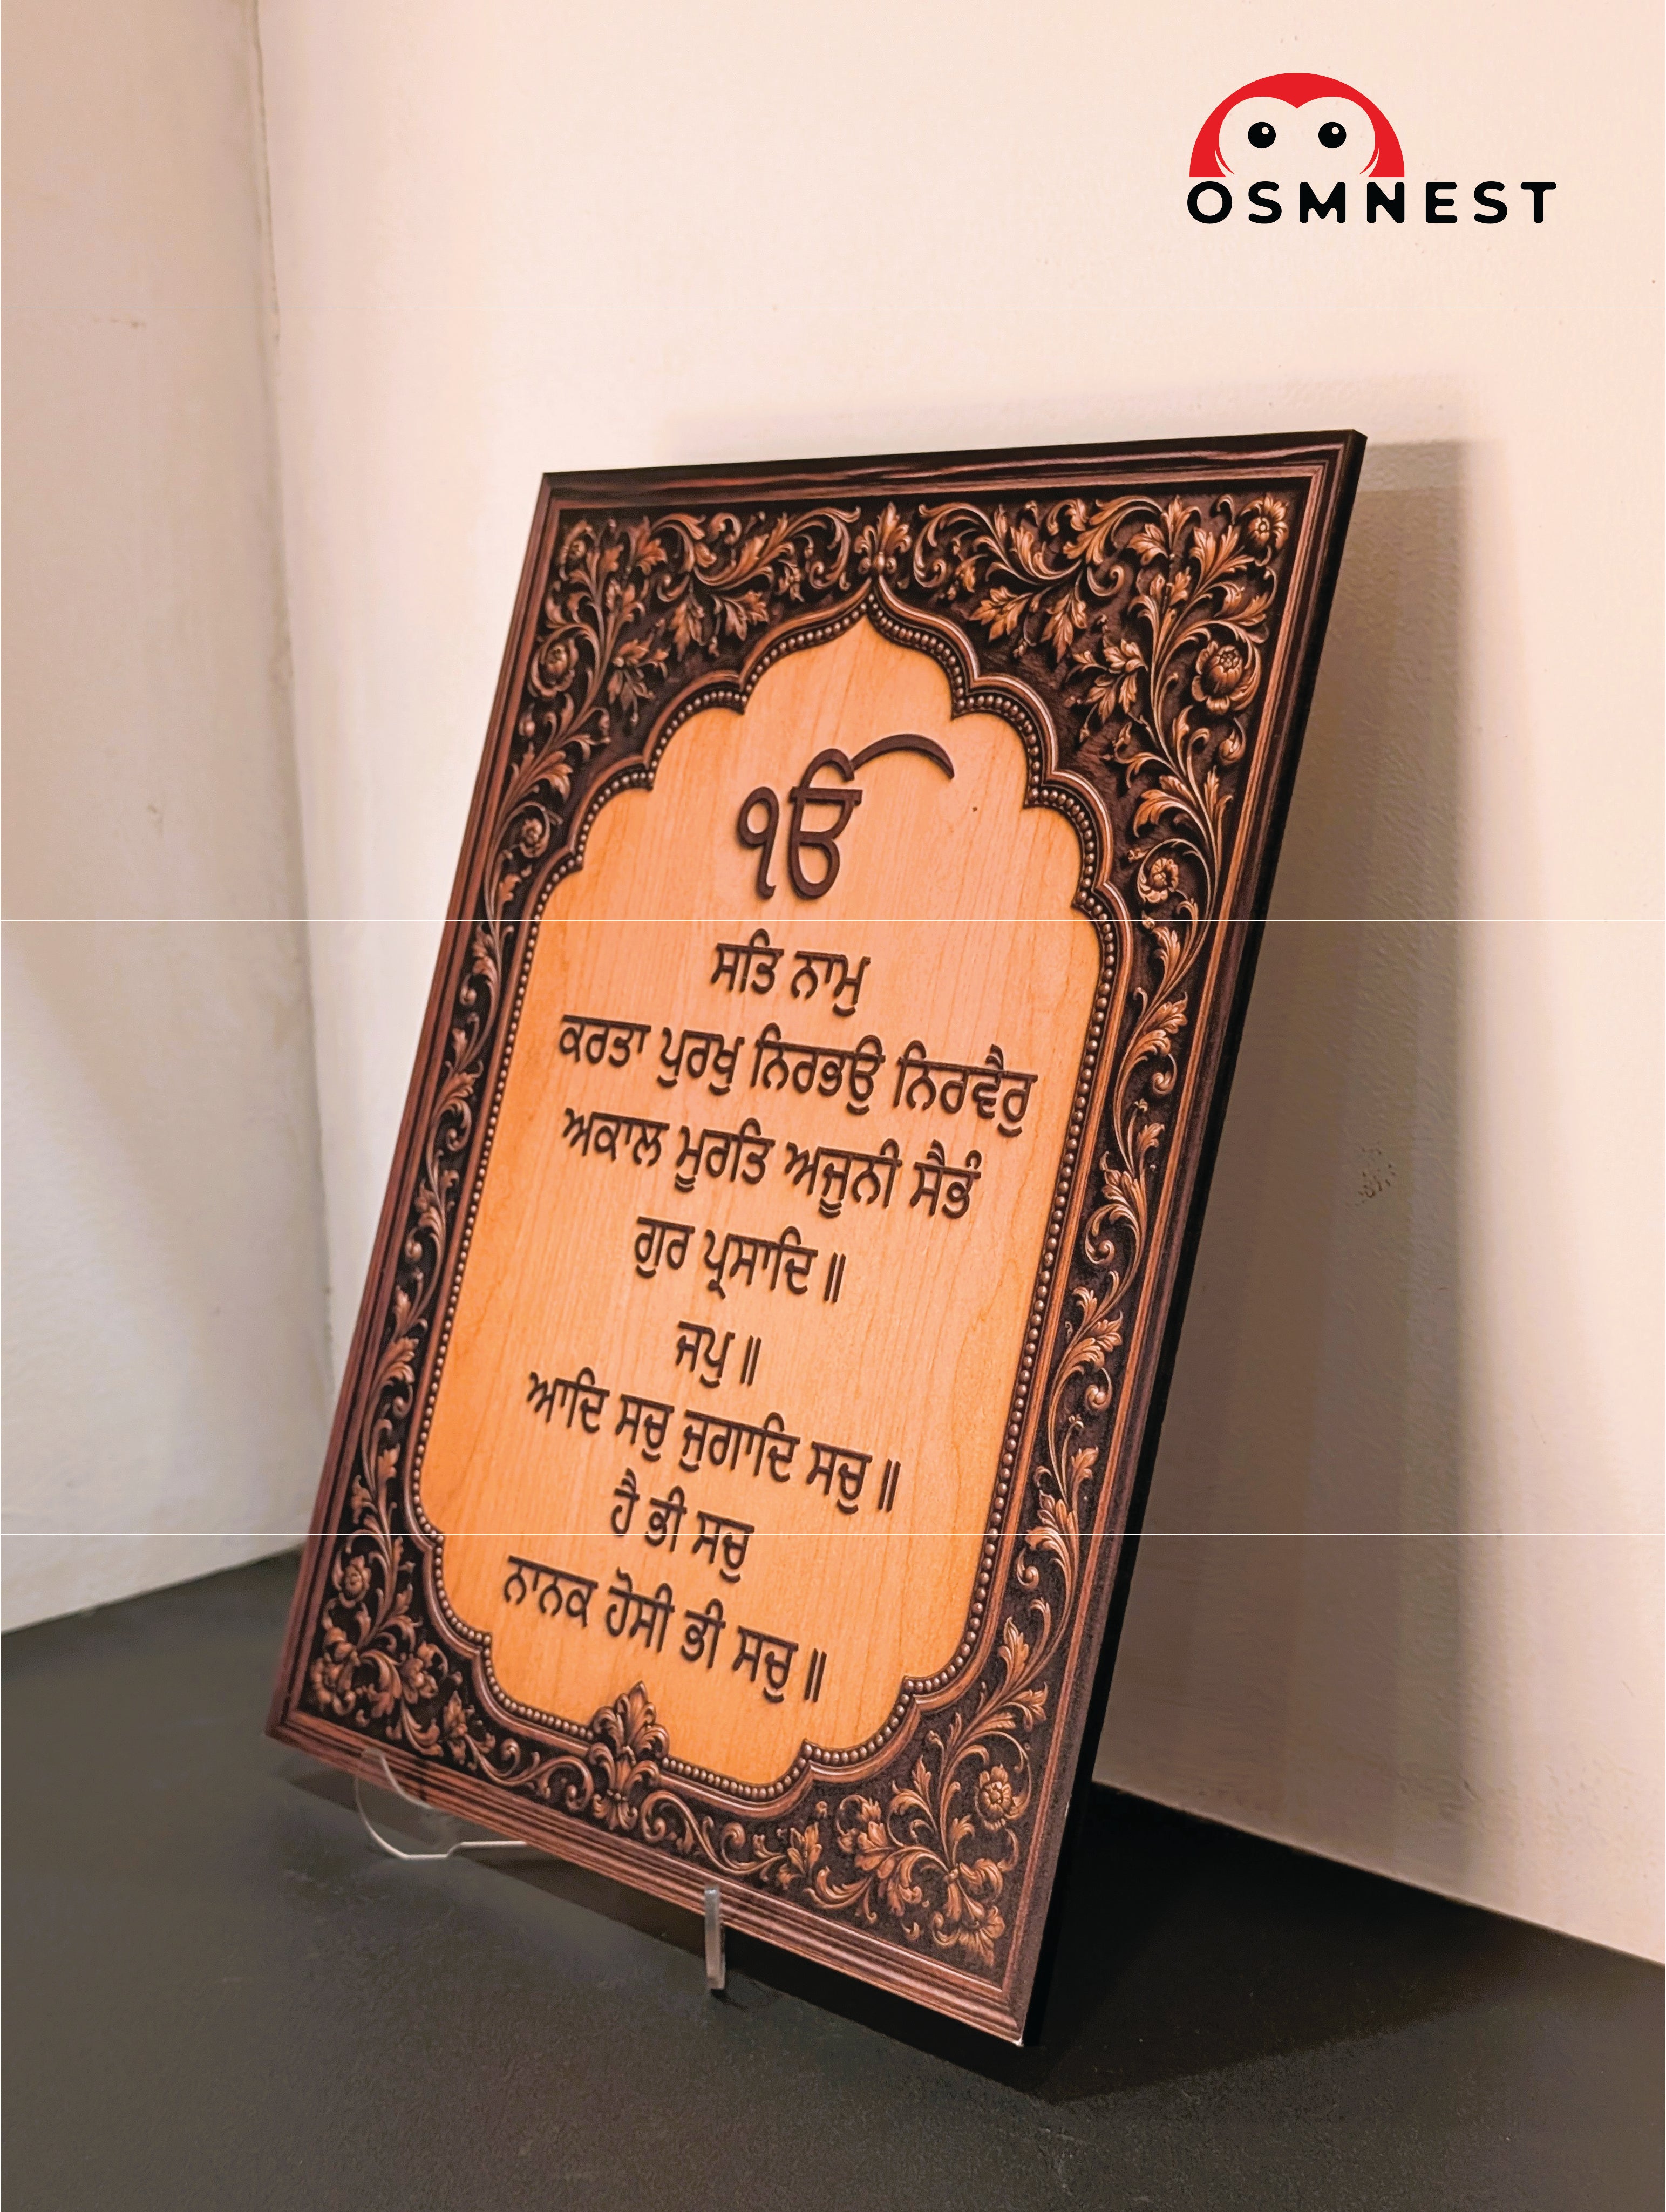 OSMNEST
ੴ
ਸਤਿ ਨਾਮੁ
ਕਰਤਾ ਪੁਰਖੁ ਨਿਰਭਉ ਨਿਰਵੈਰੁ
ਅਕਾਲ ਮੂਰਤਿ ਅਜੂਨੀ ਸੈਭੰ
ਗੁਰ ਪ੍ਰਸਾਦਿ॥
ਜਪੁ॥
ਆਦਿ ਸਚੁ ਜੁਗਾਦਿ ਸਚੁ॥
ਹੈ ਭੀ ਸਚੁ
ਨਾਨਕ ਹੋਸੀ ਭੀ ਸਚੁ॥